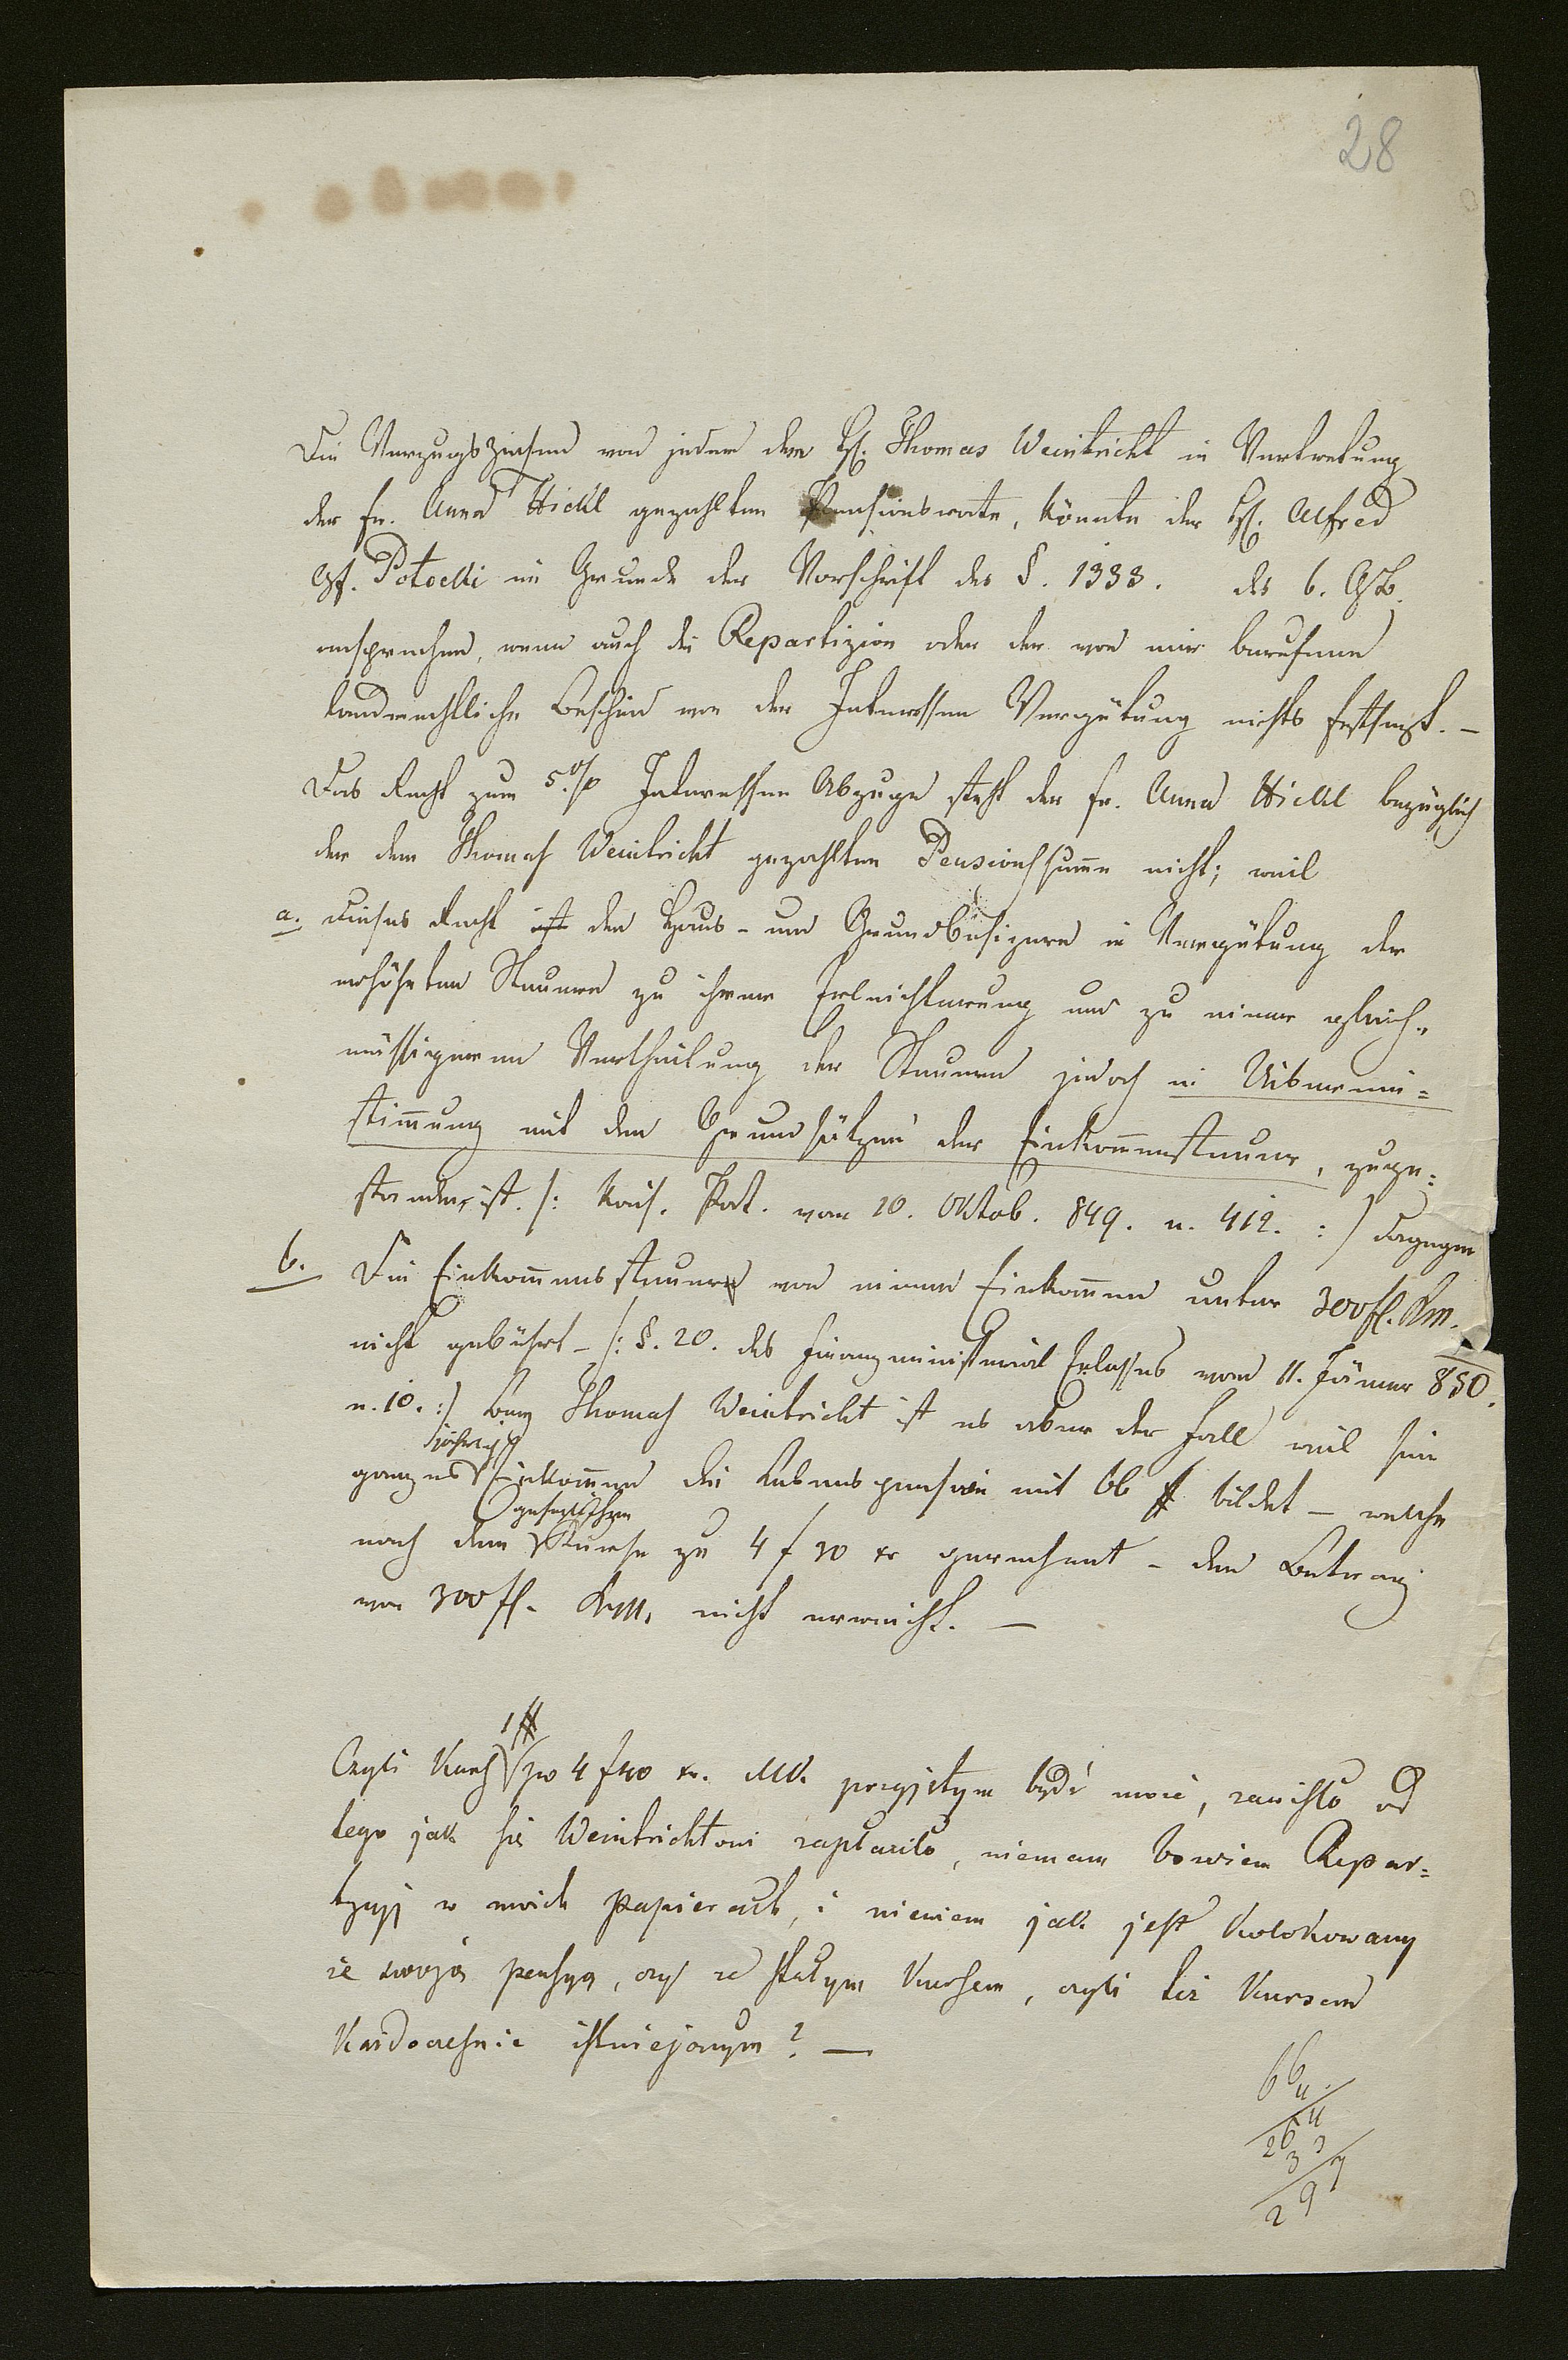 28
Die Verzugszinsen von jeder dem H. Thomas Weintricht in Vertretung
der Fr. Anna Hickl gezahlten Pensionsrate, könnte der H. Alfred
Gf. Potocki im Grunde der Vorschrift des §. 1333. des b. GB.
ansprechen, wenn auch die Repartizion oder der von mir berufene
landrechtliche Bescheid von der Interessen Vergütung nichts festsetzt. –
Das Recht zum 5% Interessen Abzuge steht der Fr. Anna Hickl bezüglich
der dem Thomas Weintricht gezahlten Pensionssume nicht; weil
a. Dieses Recht ist den Haus- und Grundbesizern in Vergütung der
erhöhten Steuern zu ihrer Erleichterung und zu einer gleich-
mässigeren Vertheilung der Steuern jedoch in Uiberein=
stimung mit den Grundsätzen der Einkomensteuer, zuge=
standen ist. /: Kais. Pat. vom 10. Oktob. 849. n. 412. :/ Dagegen
b. Die Einkomenssteuer von einem Einkomen unter 300 fl. Km.
nicht gebührt – /: §. 20. des Finanzministerial Erlasses vom 11. Jäner 850.
n. 10. :/ beim Thomas Weintricht ist es aber der Fall weil sein
jähriges
ganzes Einkomen die Lebenspension mit 66 # bildet – welche
gesetzlichen
nach dem Kurse zu 4 f 30 xr gerechnet – den Betrag
von 300 fl. Km. nicht erreicht. –
1 #
Czyli Kurs po 4 f 30 xr. MK. przyjętym bydź może, zawisło od
tego jak się Weintrichtowi zapłaciło, niemam bowiem Repar=
tycyi w moich papierach, i niewiem jak jest kolokowany
ze swoją pensyą, czy ze stałym Kursem, czyli też Kursem
każdocześnie istniejącym? —
66
4.
264
33
297